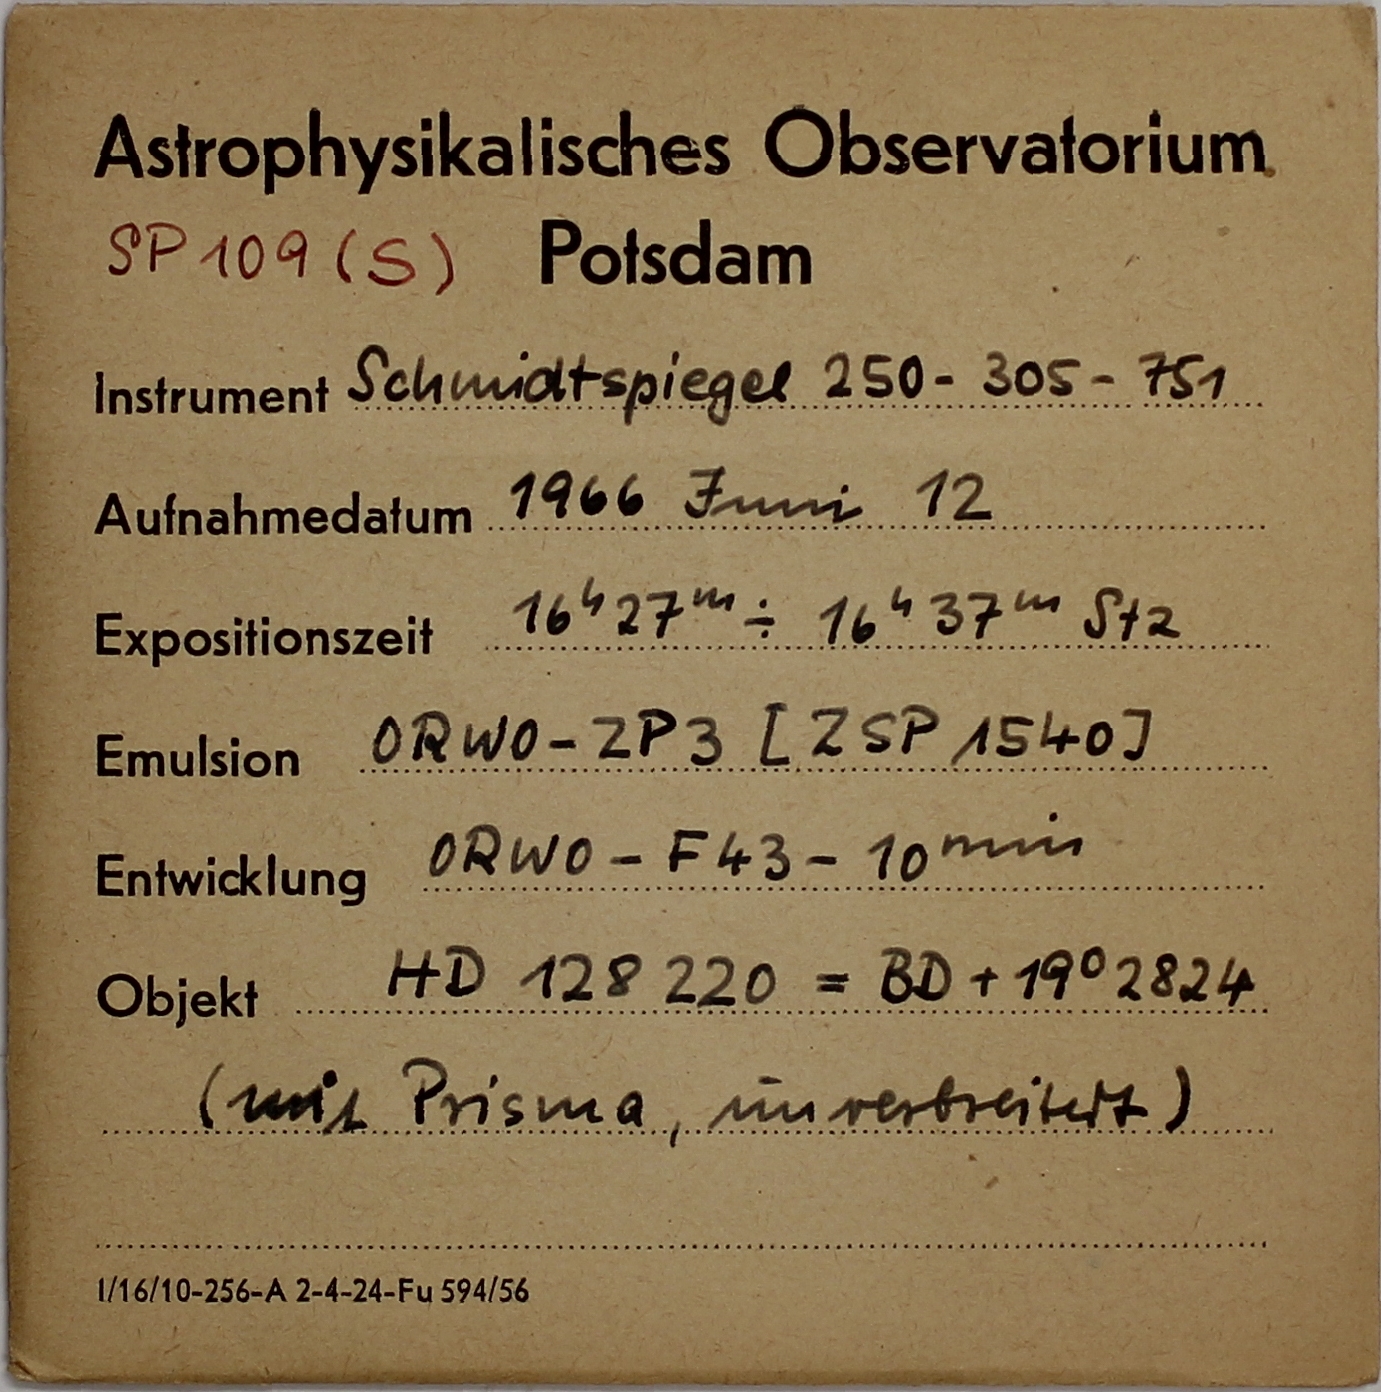 Astrophysikalisches Observatorium
SP 109 (S) Potsdam
Instrument Schmidtspiegel 250 - 305 - 751
Aufnahmedatum 1966 Juni 12
Expositionszeit 16ʰ 27ᵐ ÷ 16ʰ 37ᵐ Stz
Emulsion ORWO - ZP3 [ZSP 1540]
Entwicklung ORWO - F43 - 10 min
Objekt HD 128 220 = BD + 19° 2824
(mit Prisma, unverbreitert)
I/16/10-256-A 2-4-24-Fu 594/56